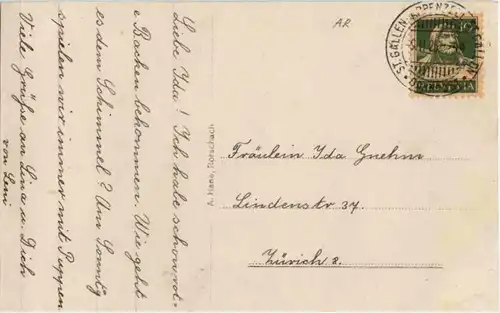 Liebe Ida! Ich habe schon rot-
e Backen bekommen. Wie geht
es dem Schimmel? Am Sontig
spielen wir immer mit Puppen
Viele Grüße an Lina u. Dich
von Leni
A. Hane, Rorschach
AR
ST. GALLEN
HELVETIA
Fräulein Ida Gnehm
Lindenstr 37.
Zürich 8.